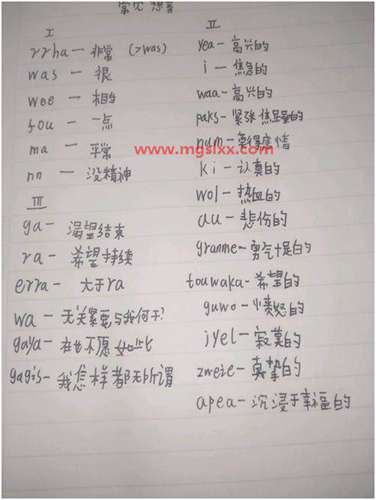 常见
I
rrha — 非常 (>was)
was — 很
wee — 相当
fou — 一点
ma — 平常
nn — 没精神
III
ga — 渴望结束
ra — 希望持续
erra — 大于ra
wa — 无关紧要与我何干?
gaya — 在也不愿如此
gagis — 我怎样都无所谓
II
yea — 高兴的
i — 焦急的
waa — 高兴的
paks — 紧张焦虑的
num —
www.mgslxx.com
ki — 认真的
wol — 热血的
au — 悲伤的
granme — 勇气十足的
touwaka — 希望的
guwo — 愤怒的
iyel — 寂寞的
zweie — 真挚的
apea — 沉浸于幸福的